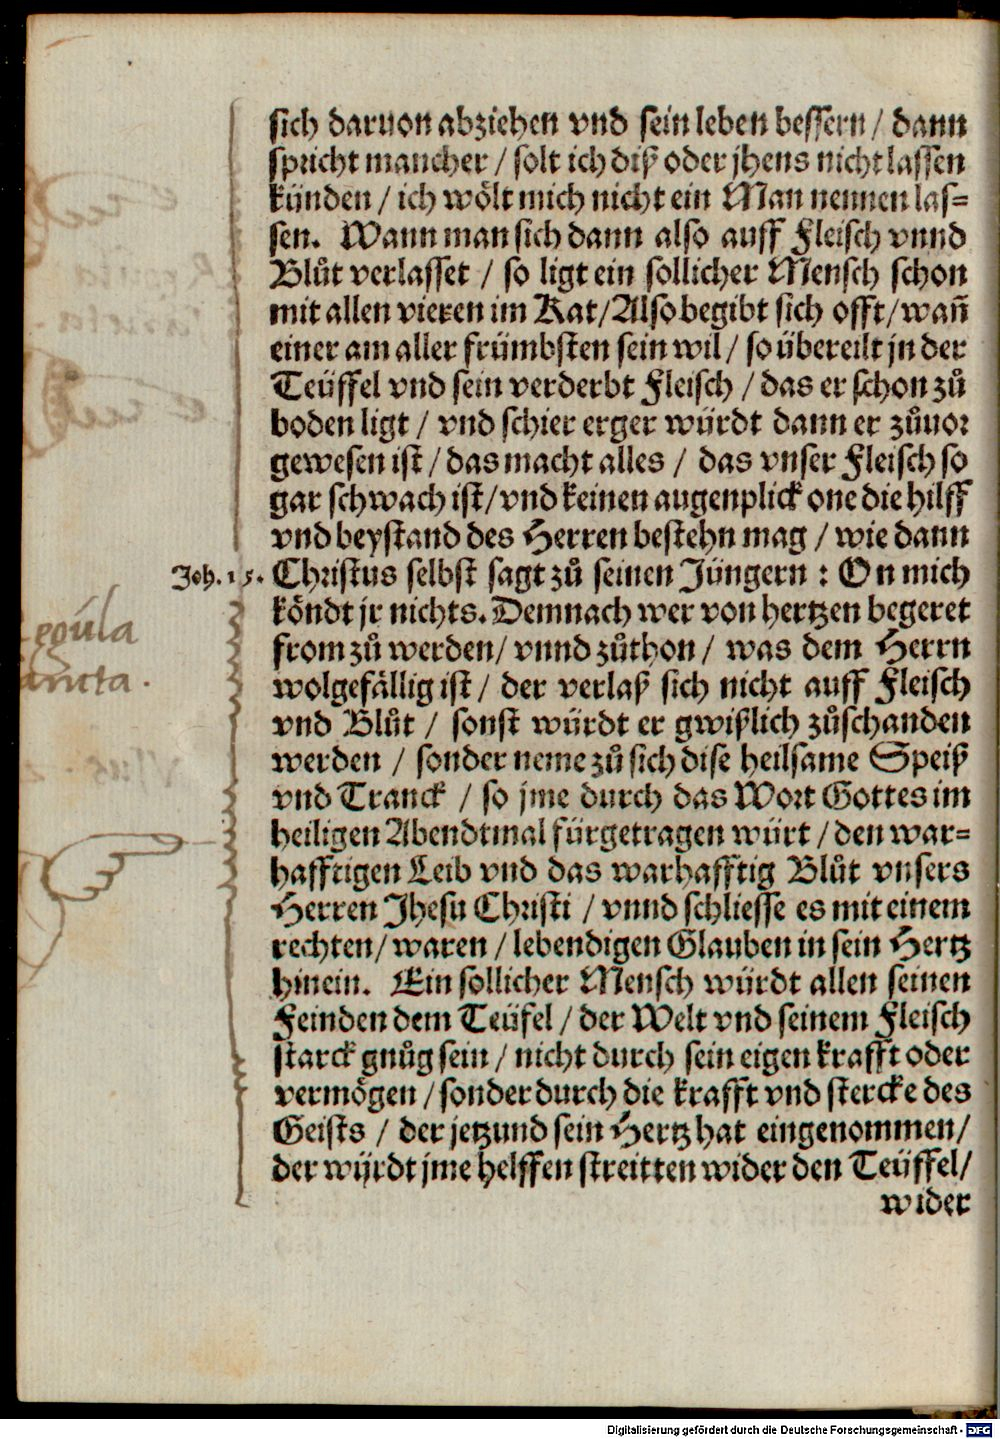 sich daruon abziehen vnd sein leben bessern / dann
spricht mancher / solt ich diß oder jhens nicht lassen
künden / ich wölt mich nicht ein Man nennen las-
sen. Wann man sich dann also auff Fleisch vnnd
Blůt verlasset / so ligt ein sollicher Mensch schon
mit allen vieren im Kat / Also begibt sich offt / wañ
einer am aller frümbsten sein wil / so übereilt jn der
Teüffel vnd sein verderbt Fleisch / das er schon zů
boden ligt / vnd schier erger würdt dann er zůuor
gewesen ist / das macht alles / das vnser Fleisch so
gar schwach ist / vnd keinen augenplick one die hilff
vnd beystand des Herren bestehn mag / wie dann
Joh. 15. Christus selbst sagt zů seinen Jüngern : On mich
köndt jr nichts. Demnach wer von hertzen begeret
from zů werden / vnnd zůthon / was dem Herrn
wolgefällig ist / der verlaß sich nicht auff Fleisch
vnd Blůt / sonst würdt er gwißlich zůschanden
werden / sonder neme zů sich dise heilsame Speiß
vnd Tranck / so jme durch das Wort Gottes im
heiligen Abendtmal fürgetragen würt / den war-
hafftigen Leib vnd das warhafftig Blůt vnsers
Herren Jhesu Christi / vnnd schliesse es mit einem
rechten / waren / lebendigen Glauben in sein Hertz
hinein. Ein sollicher Mensch würdt allen seinen
Feinden dem Teüfel / der Welt vnd seinem Fleisch
starck gnůg sein / nicht durch sein eigen krafft oder
vermögen / sonder durch die krafft vnd stercke des
Geists / der jetzund sein Hertz hat eingenommen /
der würdt jme helffen streitten wider den Teüffel /
wider
Digitalisierung gefördert durch die Deutsche Forschungsgemeinschaft - DFG